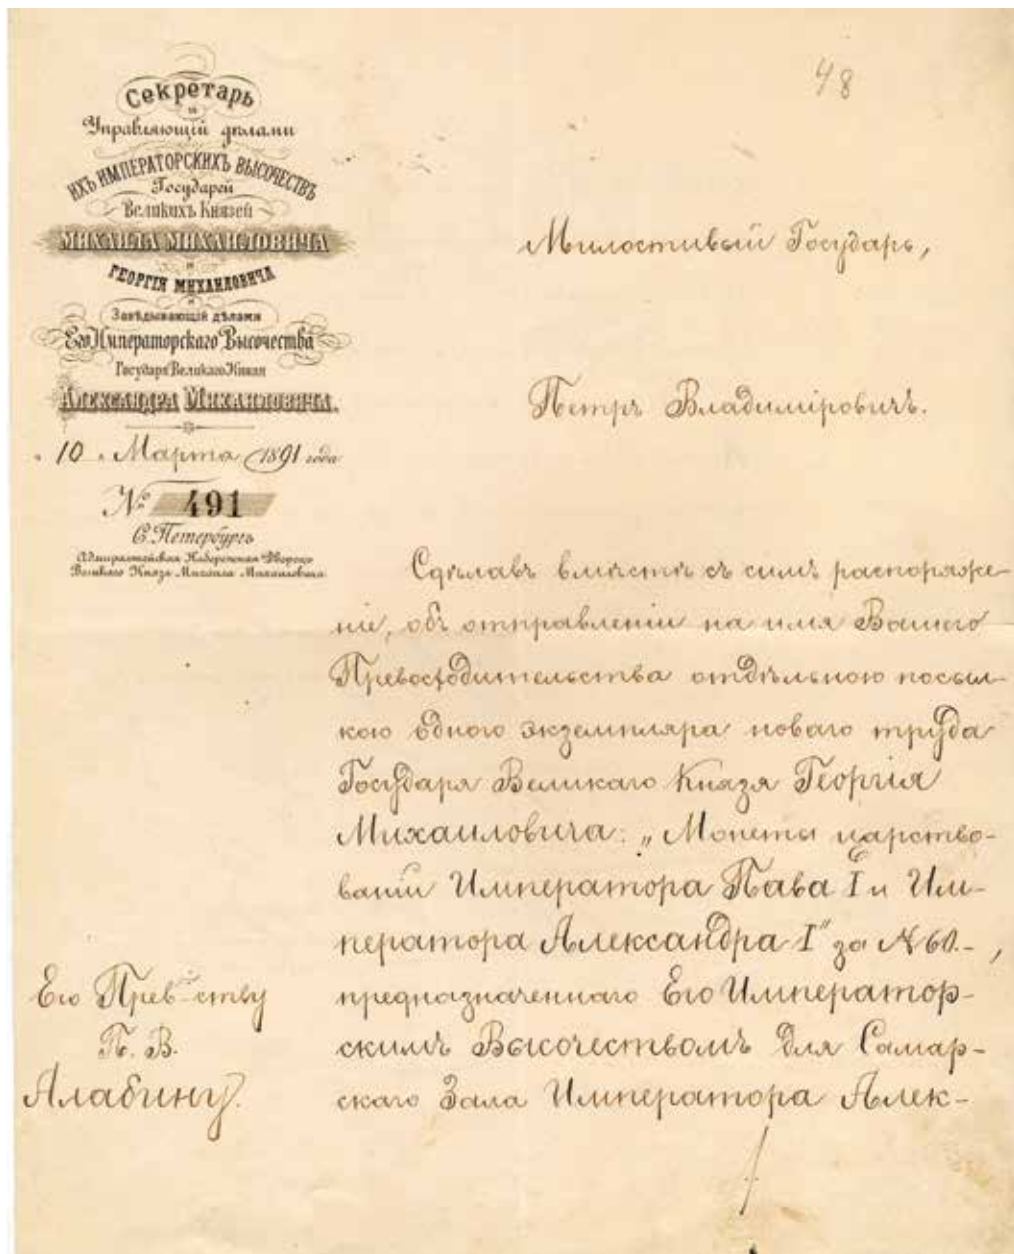 48
Секретарь
и
Управляющій дѣлами
ИХЪ ИМПЕРАТОРСКИХЪ ВЫСОЧЕСТВЪ
Государей
Великихъ Князей
МИХАИЛА МИХАИЛОВИЧА
и
ГЕОРГІЯ МИХАИЛОВИЧА
и
Завѣдывающій дѣлами
Его Императорскаго Высочества
Государя Великаго Князя
АЛЕКСАНДРА МИХАИЛОВИЧА.
„10„ Марта 1891 года
№ 491
С. Петербургъ
Адмиралтейская Набережная Дворецъ
Великаго Князя Михаила Михаиловича
Милостивый Государь,
Петръ Владиміровичъ.
Сдѣлавъ вмѣстѣ съ симъ распоряже-
ніе, объ отправленіи на имя Вашего
Превосходительства отдѣльною посыл-
кою одного экземпляра новаго труда
Государя Великаго Князя Георгія
Михаиловича: „Монеты царство-
ваній Императора Павла I и Им-
ператора Александра I" за № 60.-,
предназначеннаго Его Император-
скимъ Высочествомъ для Самар-
скаго Зала Императора Алек-
Его Прев-ству
П. В.
Алабину.